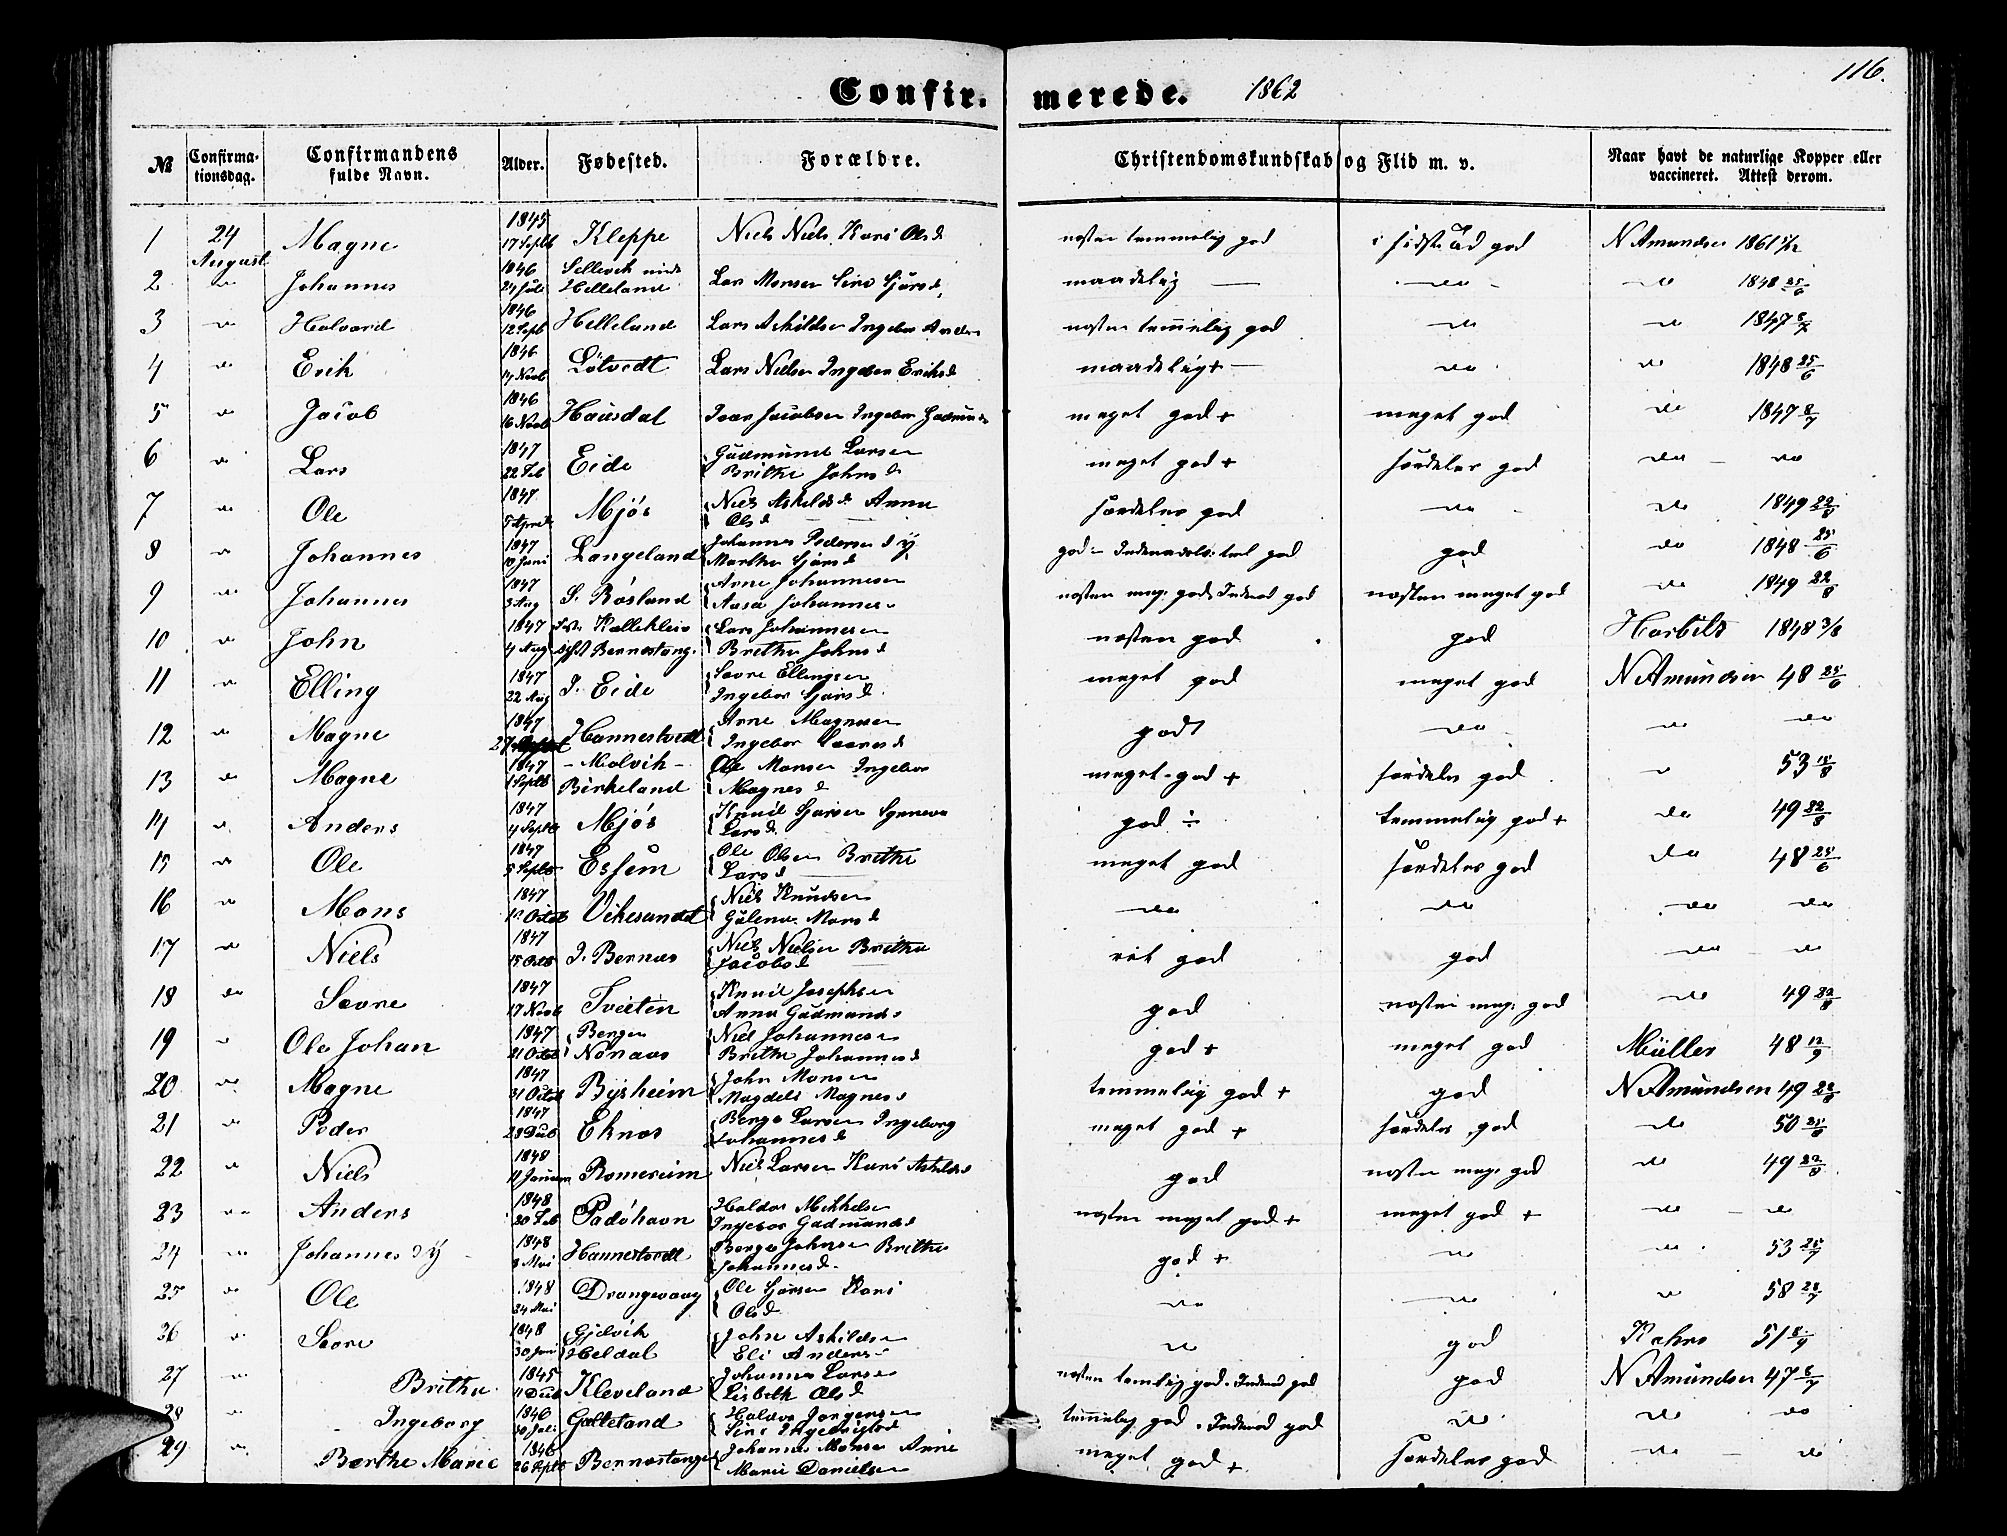 116.
Confirmerede. 1862
№ Confirmationsdag. Confirmandens fulde Navn. Alder. Fødested. Forældre. Christendomskundskab og Flid m. v. Naar havt de naturlige Kopper eller vaccineret. Attest derom.
1 24 August Magne 1845 17 Septb Kleppe Niels Niels. Kari Olsd næsten temmelig god god N Amundsen 1861
2 " Johannes 1846 24 Juli Helleland Lars Monsen maadelig — do do 1848 25/6
3 " Halvard 1846 12 Septb Helleland Lars Askildsen Ingebor Anders næsten temmelig god do do 1847 8/7
4 " Erik 1846 14 Novb Lötvedt Lars Nielsen Ingebor Eriksd maadelig + — do do 1848 25/6
5 " Jacob 1846 16 Novb Hausdal Ivar Jacobsen Ingebor meget god + meget god do 1847 8/7
6 " Lars 1847 22 Feb Eide Gudmund Larsen Brithe Johnsd meget god + særdeles god do — do
7 " Ole 1847 5 April Mjös Niels Askilds Anna Olsd særdeles god do do 1849 22/8
8 " Johannes 1847 10 Juni Langeland Johannes Pedersen d y Martha Sjursd god god do 1848 25/6
9 " Johannes 1847 3 Aug S. Røsland Arne Johannesen Aasa Johannes næsten meg. god. god næsten meget god do 1849 22/8
10 " John 1847 4 Aug Bernestang. Lars Johannesen Britha Johnsd næsten god god 1848 3/8
11 " Elling 1847 22 Aug I. Eide Sævre Ellingsen Ingebor Sjursd meget god meget god N Amundsen 48 25/6
12 " Magne 1847 27 Hannestvedt Arne Magnesen Ingebor godt do do do
13 " Magne 1847 1 Septb - Molvik - Birkeland Ole Monsen Ingebor Magnesd meget god + særdeles god " 53 18/8
14 " Anders 1847 4 Septb Mjös Knud Sjursen Synneva Larsd god ÷ temmelig god + do 49 22/8
15 " Ole 1847 5 Septb Essem Ole Olsen Brithe Larsd meget god særdeles god do 48 25/6
16 " Mons 1847 Octob Vikesandet Niels Knudsen Gulena Monsd do do do do
17 " Niels 1847 15 Octb I. Bernæs Niels Nielsen Britha Jacobsd ret god god do do
18 do Sævre 1847 17 Novb Tveiten Knud Josephsen Anna Gudmunds god næsten meg. god do 49 22/8
19 " Ole Johan 1847 21 Octob Bergen Nöraas Niels Johannesen Britha Johannesd god + meget god Müller 48 12/9
20 " Magne 1847 31 Octob Bysheim John Monsen Magdeli Magnes temmelig god + god N Amundsen 49 22/8
21 " Peder 1847 Eknæs Berge Larsen Ingeborg Johannesd meget god + særdeles god do 50
22 " Niels 1848 Januar Romereim Niels Larsen Kari Askilds god næsten meg. god do 49 22/8
23 " Anders 1848 20 Feb Padöhavn Haldor Mikkelsen Ingebor Gudmundsd næsten meget god + meget god + do — do
24 " Johannes d y 1848 8 Mai Hannestvedt Berge Johnsen Brithe Johannesd. god + do do 53
25 " Ole 1848 24 Mai Drangevaag Ole Sjursen Kari Olsd do do " 58
26 " Sævre 1848 30 Juni Gjelvik Heldal John Askildsen Eli Anders do god Rahrs 51 8/9
27 " Britha 1845 Kleveland Johannes Larsen Lisbeth Olsd næsten temlig god. god god N Amundsen 47 8/7
28 " Ingeborg 1846 30 Juli Gulleland Haldor temmelig god. god do do do
29 " Berthe Marie 1846 26 Septb Bernestangen Johannes Monsen Anne Marie Danielsen meget god + særdeles god do — do